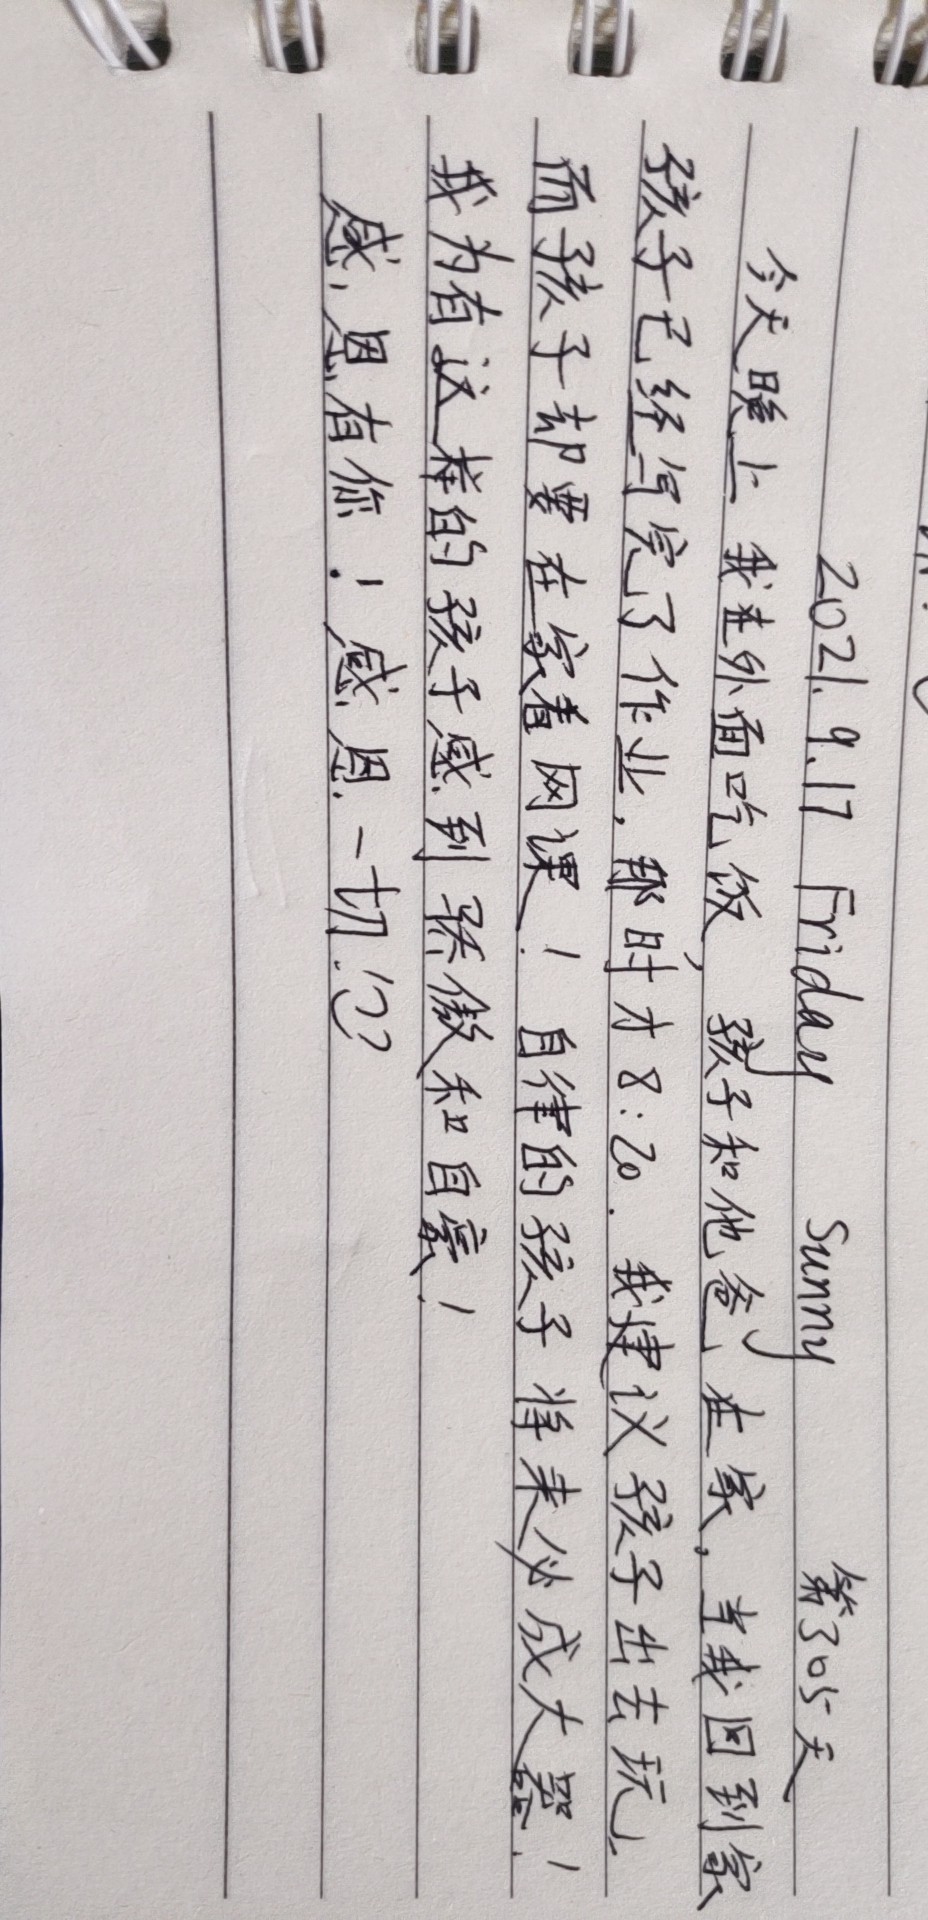 2021.9.17 Friday Sunny 第305天
今天晚上 我在外面吃饭, 孩子和他爸、在家。当我回到家
孩子已经写完了作业, 那时才8:20. 我建议孩子出去玩,
而孩子却要在家看网课! 自律的孩子 将来必成大器!
我为有这样的孩子感到骄傲和自豪!
感恩有你! 感恩一切!